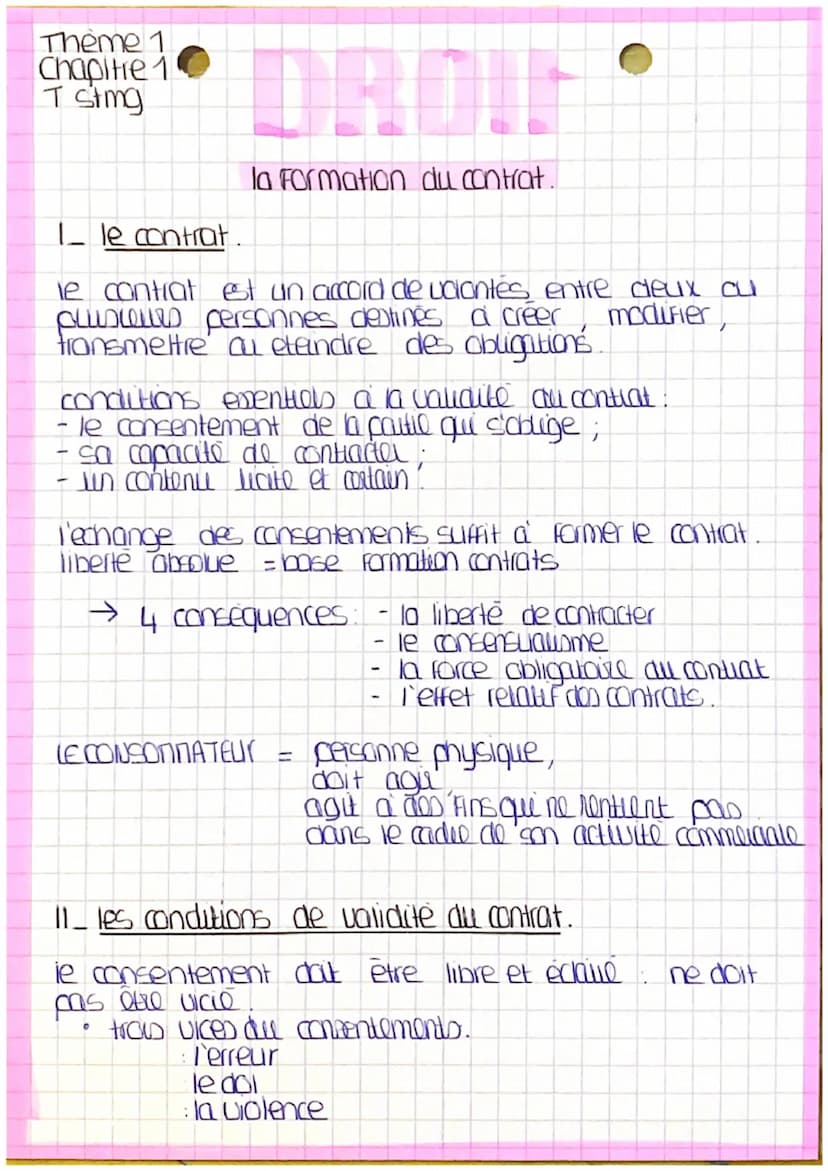 Thème 1
Chapitre 1
T stmg
DROIT
la Formation du contrat.
I_ le contrat.
le contrat est un accord de volontés entre deux ou
plusieurs personnes destinés à créer, modifier,
transmettre ou eteindre des obligations.
conditions essentiels à la validité du contrat :
- le consentement de la partie qui s'oblige ;
- sa capacité de contracter ;
- un contenu licite et certain.
l'echange des consentements suffit à former le contrat.
liberté absolue = base formation contrats
→ 4 conséquences : - la liberté de contracter
- le consensualisme
- la force obligatoire du contrat
- l'effet relatif des contrats.
LE CONSOMMATEUR = personne physique,
doit agir
agit à des fins qui ne rentrent pas
dans le cadre de son activité commerciale
II_ les conditions de validité du contrat.
le consentement doit être libre et éclairé : ne doit
pas être vicié.
• trois vices du consentements.
: l'erreur
le dol
: la violence